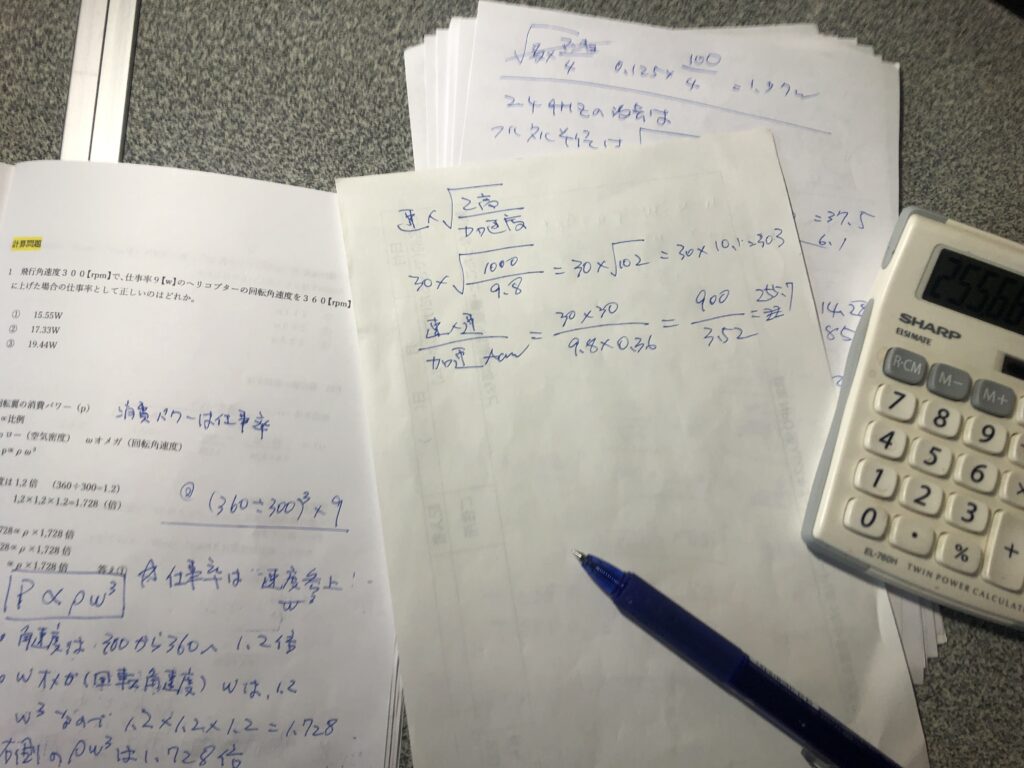 計算問題
1 飛行角速度300【rpm】で、仕事率9【w】のヘリコプターの回転角速度を360【rpm】
に上げた場合の仕事率として正しいのはどれか。
① 15.55W
② 17.33W
③ 19.44W
回転翼の消費パワー(p)
∝比例
ロー(空気密度) ωオメガ(回転角速度)
p∝ρω³
消費パワーは仕事率
度は1.2倍 (360÷300=1.2)
1.2×1.2×1.2=1.728(倍)
728∝ρ×1.728倍
728∝ρ×1.728倍
∝ρ×1.728倍 答え①
② (360÷300)³×9
P∝ρω³
仕事率は 速度参上!
ω³
角速度は300から360へ 1.2倍
ωオメガ(回転角速度) ωは1.2
ω³なので 1.2×1.2×1.2=1.728
右側のρω³は1.728倍
速×√2高/加速度
30×√1000/9.8=30×√102=30×10.1=303
速×速/加速 tan=30×30/9.8×0.36=900/3.52=255.7
4 0.125×100/4=1.97w
2.4GHzの場合は
フルネル半径は
=37.5
6.1
14.28
85
255.68
SHARP
ELSIMATE
R·CM M− M+
7 8 9
4 5 6
1 2 3
0 · % +
EL-760H TWIN POWER CALCULA